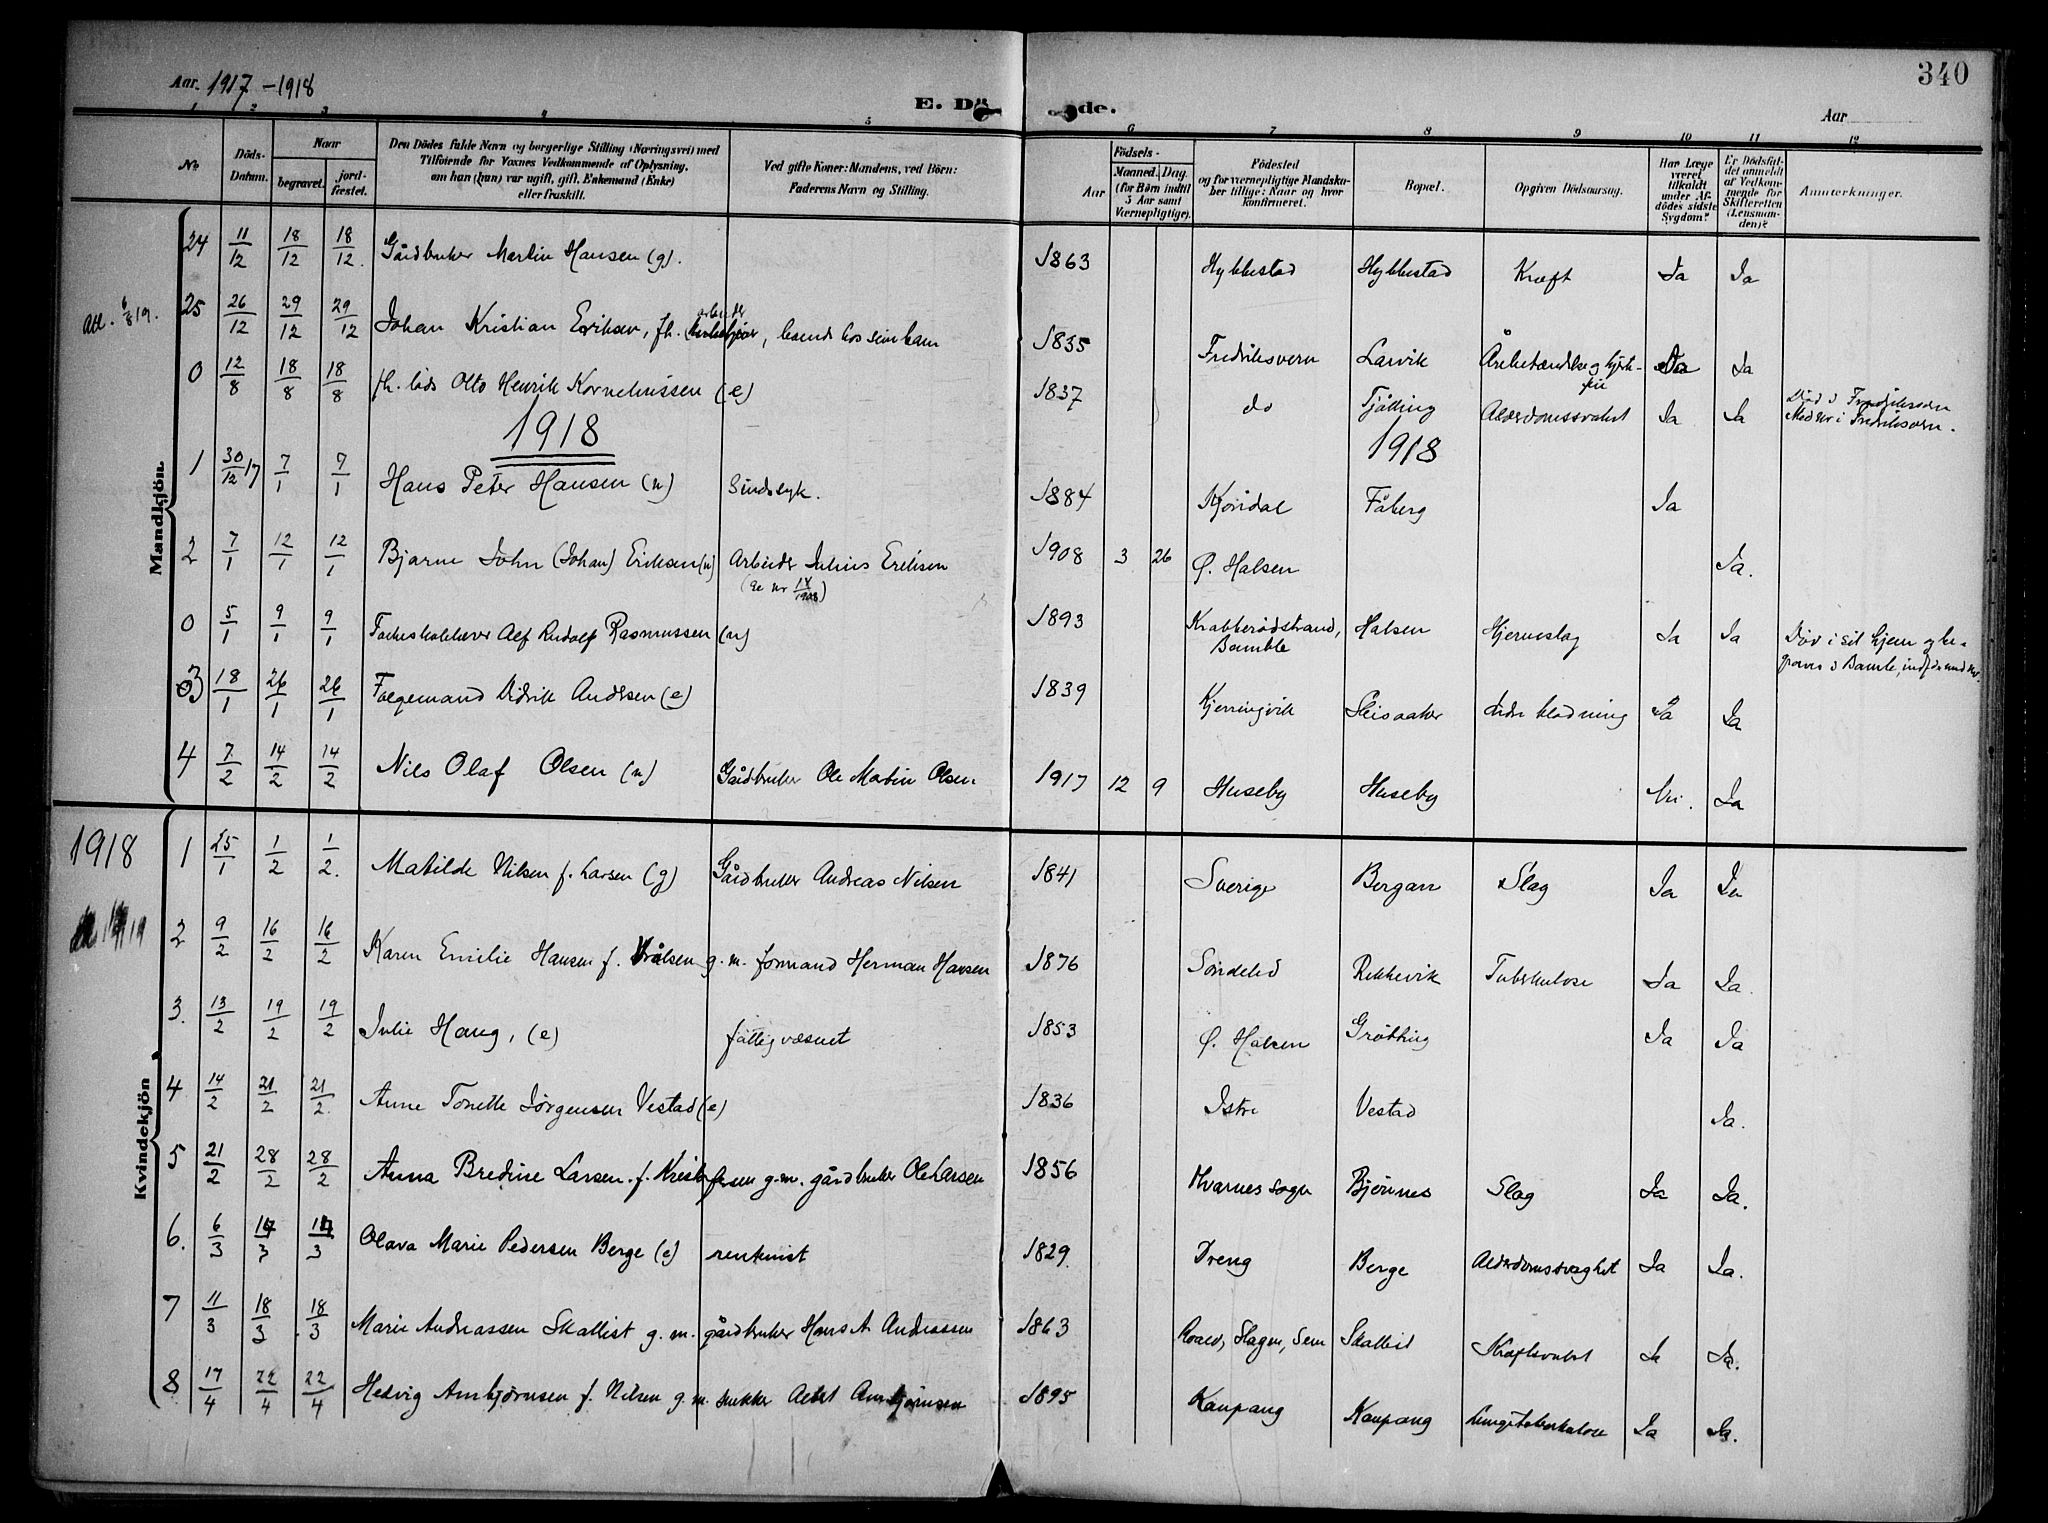 340
Aar. 1917 – 1918
E. Dö de.
Aar
1 2 3 4 5 6 7 8 9 10 11 12
No
Döds-Datum.
Naar
begravet.
jord-fæstet.
Den Dödes fulde Navn og borgerlige Stilling (Næringsvei) med
Tilföiende for Voxnes Vedkommende af Oplysning,
om han (hun) var ugift, gift, Enkemand (Enke)
eller fraskilt.
Ved gifte Koner: Mandens, ved Börn:
Faderens Navn og Stilling.
Födsels-
Aar
Maaned. Dag.
(for Börn indtil
5 Aar samt
Værnepligtige).
Födested
og for værnepligtige Mandska-
ber tillige: Naar og hvor
Konfirmeret.
Bopæl.
Opgiven Dödsaarsag.
Har Læge
været
tilkaldt
under Af-
dödes sidste
Sygdom?
Er Dödsfal-
det anmeldt
af Vedkom-
mende for
Skifteretten
(Lensman-
den)?
Anmærkninger.
Mandkjön
24 11/12 18/12 18/12. Gårdbruker Martin Hansen (g). 1863 Hybbestad Hybbestad Kræft Ja Ja
25 26/12 29/12 29/12 Johan Kristian Eriksen, fh. arbeider, boende hos sine barn 1835 Fredriksvern Larvik Ja Ja
0 12/8 18/8 18/8 fh. lods Olto Henrik Korneliussen (e) 1837 do Tjølling Alderdomssvakhet Ja Ja Død i Fredriksvern
Medskr i Fredriksvern.
1918 1918
1 30/12 17 7/1 7/1 Hans Peter Hansen (u) Sindssyk. 1884 Fåberg Ja
2 7/1 12/1 12/1 Bjarne John (Johan) Eriksen (u) Arbeider Julius Eriksen 1908 3 26 Ø. Halsen Ja.
0 5/1 9/1 9/1 Alf Rudolf Rasmussen (u) 1893 Krabberødstrand, Bamble Halsen Hjerneslag Ja Ja Død i sit hjem og be-
graves i Bamle,
3 18/1 26/1 26/1 Didrik Andersen (e) 1839 Kjerringvik Indre blødning Ja Ja
4 7/2 14/2 14/2 Nils Olaf Olsen (u) Gårdbruker Ole Martin Olsen 1917 12 9 Huseby Huseby Nei. Ja
Kvindekjön
1918
1 25/1 1/2 1/2. Matilde Nilsen f. Larsen (g) Gårdbruker Andreas Nilsen 1841 Sverige Bergan Slag Ja Ja
2 9/2 16/2 16/2 Karen Emilie Hansen f. g. m. formand Herman Hansen 1876 Søndeled Rekkevik Tuberkulose Ja Ja.
3. 13/2 19/2 19/2 Julie Haug, (e) fattigvæsnet 1853 Ø. Halsen Grøtting Ja Ja
4 14/2 21/2 21/2. Anne Tonette Jørgensen Vestad (e) 1836 Istre Vestad Ja.
5 21/2 28/2 28/2 Anna Bredine Larsen f. Kristoffersen g. m. gårdbruker Ole Larsen 1856 Hvarnes sogn Bjønnes Slag Ja Ja.
6. 6/3 14/3 14/3 Olava Marie Pedersen Berge (e) rentenist 1829. Dreng Berge Alderdomssvaghet Ja Ja.
7 11/3 18/3 18/3 Marie Andreassen Skallist g. m. gårdbruker Hans A. Andreassen 1863 Roald, Slagen, Sem Skallist Kræftsvulst Ja Ja.
8 17/4 22/4 22/4 Hedvig Arnbjørnsen f. Nilsen g. m. snekker Arnbjørnsen 1895 Kaupang Kaupang Lungetuberkulose Ja Ja.